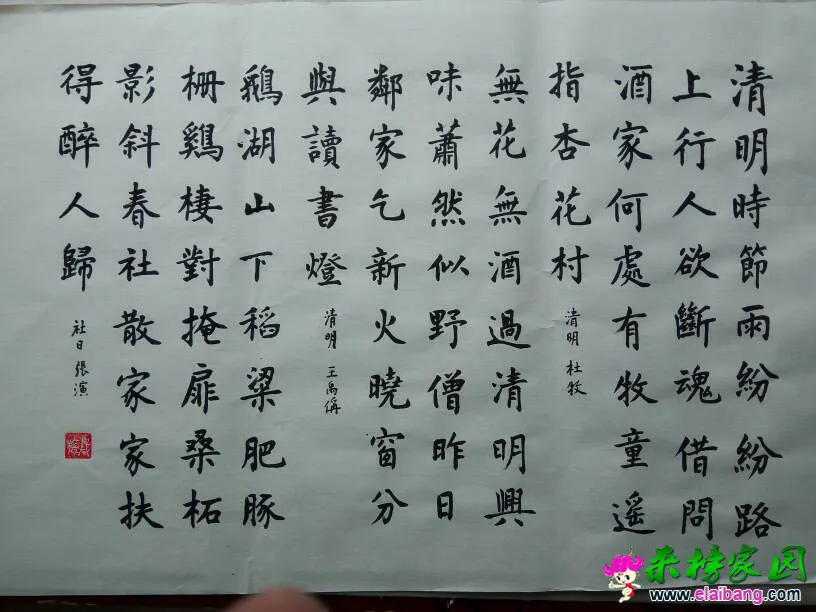 清明時節雨紛紛路
上行人欲斷魂借問
酒家何處有牧童遥
指杏花村
清明 杜牧
無花無酒過清明興
味蕭然似野僧昨日
鄰家乞新火曉窗分
與讀書燈
清明 王禹偁
鵝湖山下稻粱肥豚
栅鷄棲對掩扉桑柘
影斜春社散家家扶
得醉人歸
社日 張演
来榜家园
www.elaibang.com